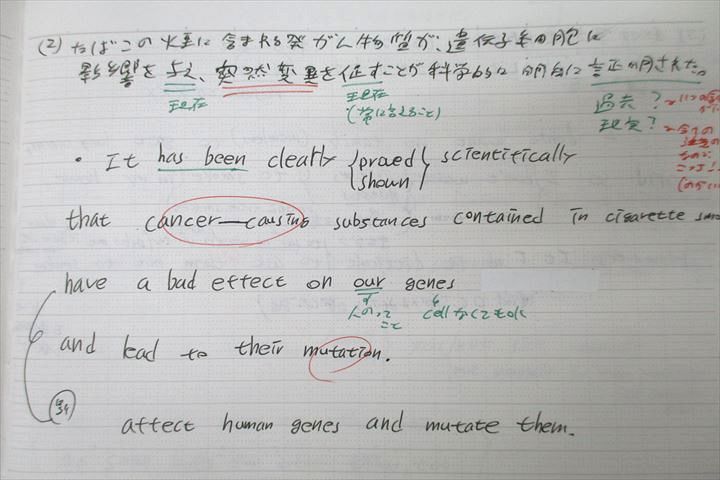 (2) たばこの煙に含まれる発がん物質が、遺伝子や細胞に
影響を与え、突然変異を促すことが科学的に明白に証明された。
現在
現在
(常に言えること)
過去?
現在?
• It has been clearly {proved shown} scientifically
that cancer-causing substances contained in cigarette
have a bad effect on our genes
人のってこと
cellなくてもok
and lead to their mutation.
affect human genes and mutate them.